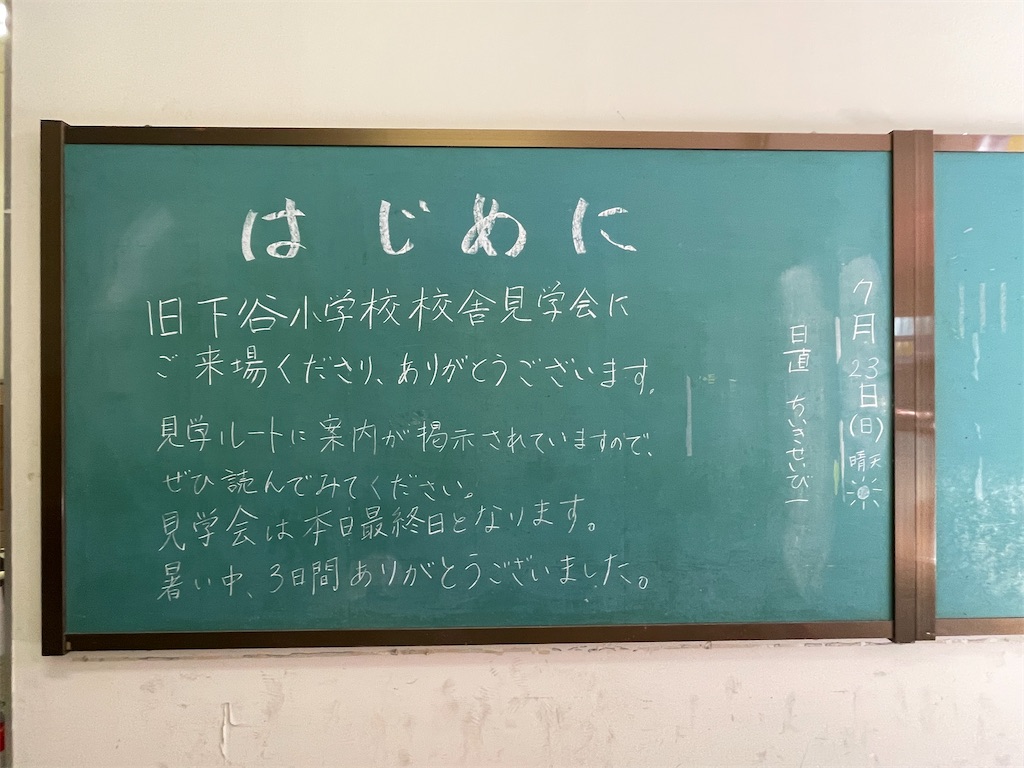 はじめに
旧下谷小学校校舎見学会に
ご来場くださり、ありがとうございます。
見学ルートに案内が掲示されていますので、
ぜひ読んでみてください。
見学会は本日最終日となります。
暑い中、3日間ありがとうございました。
7月23日(日)晴天
日直 ちいきせいびー